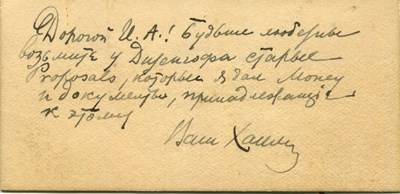 Дорогой И. А.! Будьте любезны
возьмите у Дизенгофа старые
Proposals, которые я дал Money
и документы, принадлежащие
к этому
Ваш